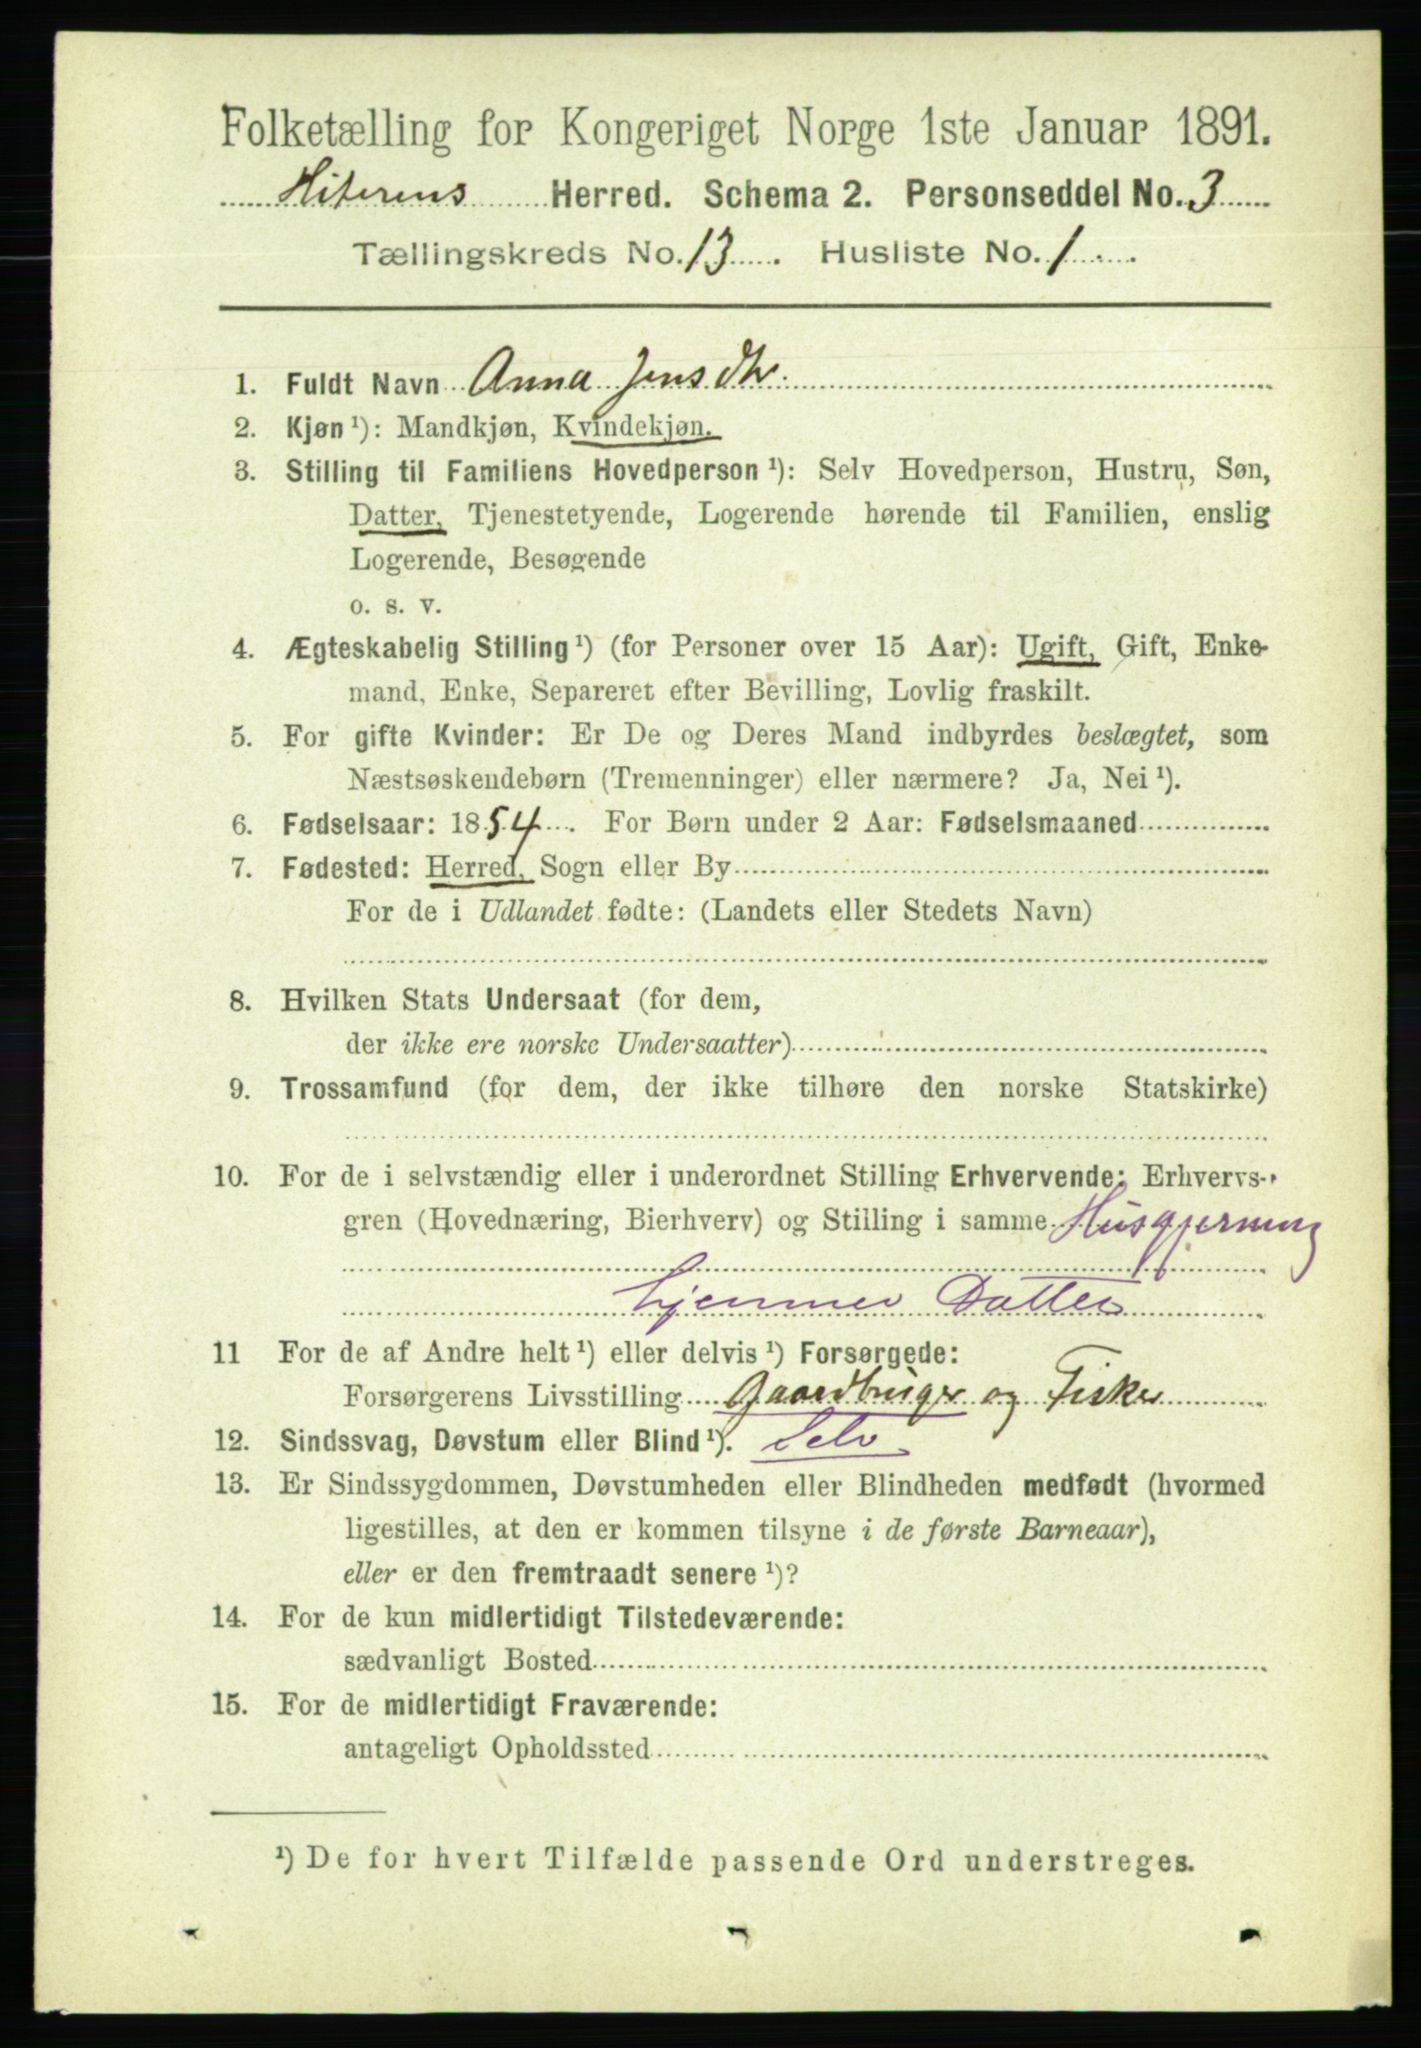 Folketælling for Kongeriget Norge 1ste Januar 1891.
Hiterens Herred. Schema 2. Personseddel No. 3
Tællingskreds No. 13. Husliste No. 1
1. Fuldt Navn Anna Jensdtr.
2. Kjøn ¹): Mandkjøn, Kvindekjøn.
3. Stilling til Familiens Hovedperson ¹): Selv Hovedperson, Hustru, Søn,
Datter, Tjenestetyende, Logerende hørende til Familien, enslig
Logerende, Besøgende
o. s. v.
4. Ægteskabelig Stilling ¹) (for Personer over 15 Aar): Ugift, Gift, Enke-
mand, Enke, Separeret efter Bevilling, Lovlig fraskilt.
5. For gifte Kvinder: Er De og Deres Mand indbyrdes beslægtet, som
Næstsøskendebørn (Tremenninger) eller nærmere? Ja, Nei ¹).
6. Fødselsaar: 1854. For Børn under 2 Aar: Fødselsmaaned
7. Fødested: Herred, Sogn eller By
For de i Udlandet fødte: (Landets eller Stedets Navn)
8. Hvilken Stats Undersaat (for dem,
der ikke ere norske Undersaatter)
9. Trossamfund (for dem, der ikke tilhøre den norske Statskirke)
10. For de i selvstændig eller i underordnet Stilling Erhvervende: Erhvervs-
gren (Hovednæring, Bierhverv) og Stilling i samme Husgjerning
hjemmev Datter
11 For de af Andre helt ¹) eller delvis ¹) Forsørgede:
Forsørgerens Livsstilling Gaardbruger og Fisker
12. Sindssvag, Døvstum eller Blind ¹). Selv
13. Er Sindssygdommen, Døvstumheden eller Blindheden medfødt (hvormed
ligestilles, at den er kommen tilsyne i de første Barneaar),
eller er den fremtraadt senere ¹)?
14. For de kun midlertidigt Tilstedeværende:
sædvanligt Bosted
15. For de midlertidigt Fraværende:
antageligt Opholdssted
¹) De for hvert Tilfælde passende Ord understreges.